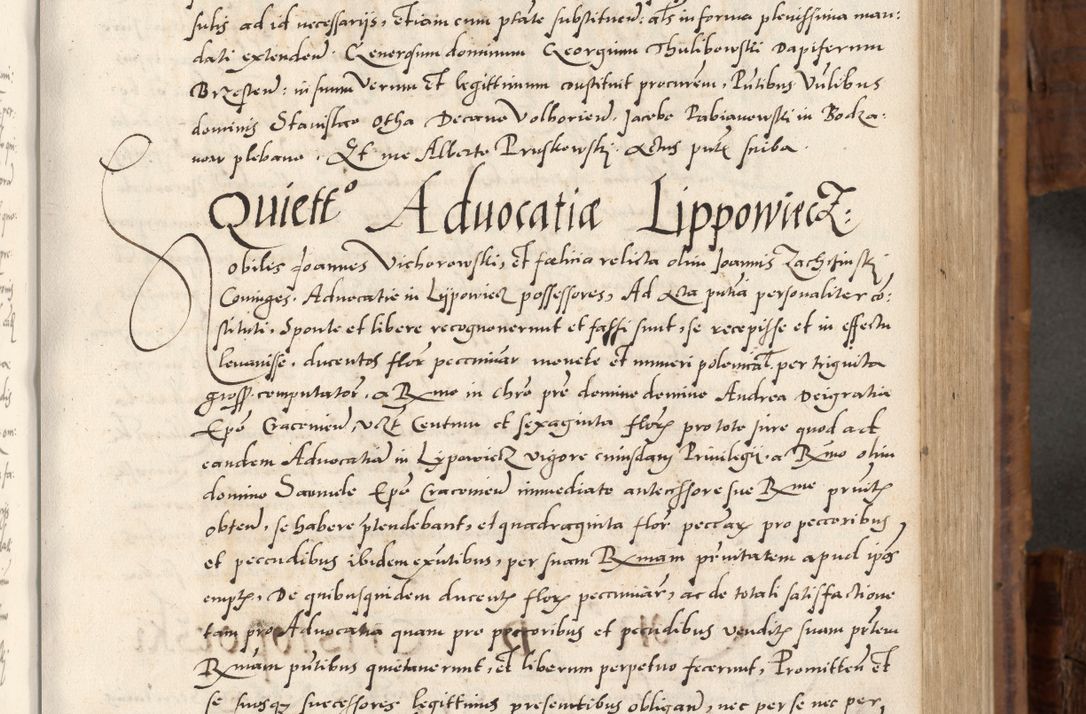 sulis ad id necessarijs, Etiam cum ptate substituen: als in forma plenissima man:
dati extenden. Generosum dominum Georgium Thulibowski Dapiferum
Brzesten: in suum Verum Et legittimum constituit procuren, Pntibus Vnlibus
dominis Stanislao Otha Decano Volborien, Jacobo Rabianowski in Bodza:
now plebano. Et me Alberto Pruskowski. Actus pntis scriba.
Quiettº Advocatiæ Lippowiecz:
Nobilis Joannes Vichorowski, et fœlicia relicta olim Joannis
Coniuges. Advocatie in Lippowiecz possessores, Ad Acta pntia personaliter co:
stituti, Sponte et libere recognouerunt et fassi sunt, se recepisse et in effectu
leuauisse, ducentos flor peccuniar monete et numeri polonical per triginta
gross. computator, a Rmo in chro pre domino domino Andrea Deigratia
Epo Cracouien, vczt Centum et sexaginta flor pro toto iure quod ad
eandem Advocatia in Lypowiecz vigore cuiusdam Priuilegij, a Rmo olim
domino Samuele Epo Cracouien immediato antecessore sue Rme pnuit
obten, se habere ptendebant, et quadraginta flor peccar pro peccoribus
et peccudibus ibidem exntibus, per suam Rmam pnuitatem apud ipos
empt, De quibusquidem ducent flor peccuniar, ac de totali satisfactione
tam pro Advocatia quam pro peccoribus et peccudibus vendit suam prtem
Rmam pntibus quietauerunt, et liberum perpetuo fecerunt, Promitten et
se suosq successores legittimos presentibus obligan, nec per se nec per